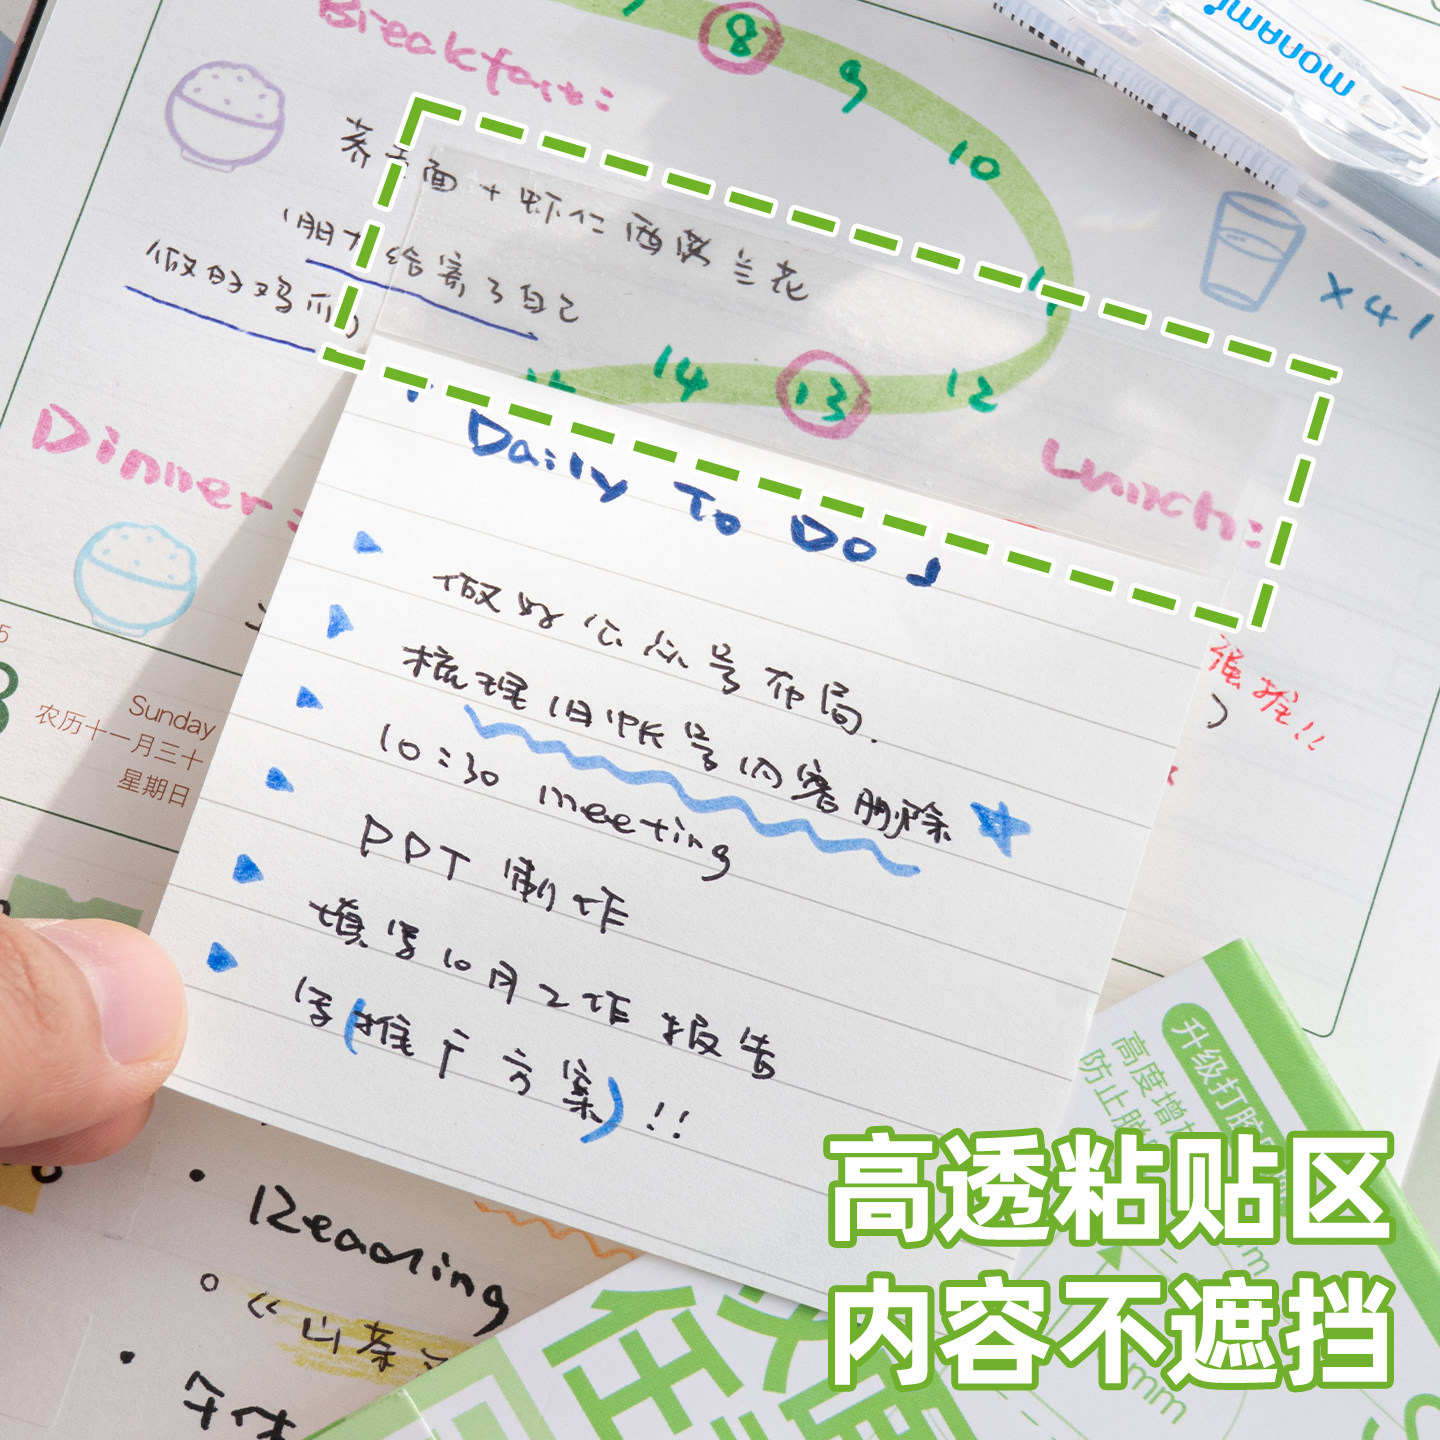 Breakfast:
8
9
10
11
12
13
14
15
荞麦面 + 虾仁西蓝花
(朋友给寄了自己
做的鸡爪)
monami
x41
Lunch:
Dinner:
强推!!
Sunday
农历十一月三十
星期日
「Daily To Do」
做好公众号布局.
梳理旧帐号内容删除
10:30 meeting
PPT 制作
填写10月工作报告
写(推广方案)!!
• Reading
《山茶
• 午休
升级打
高度增
防止脱
mm
mm
高透粘贴区
内容不遮挡